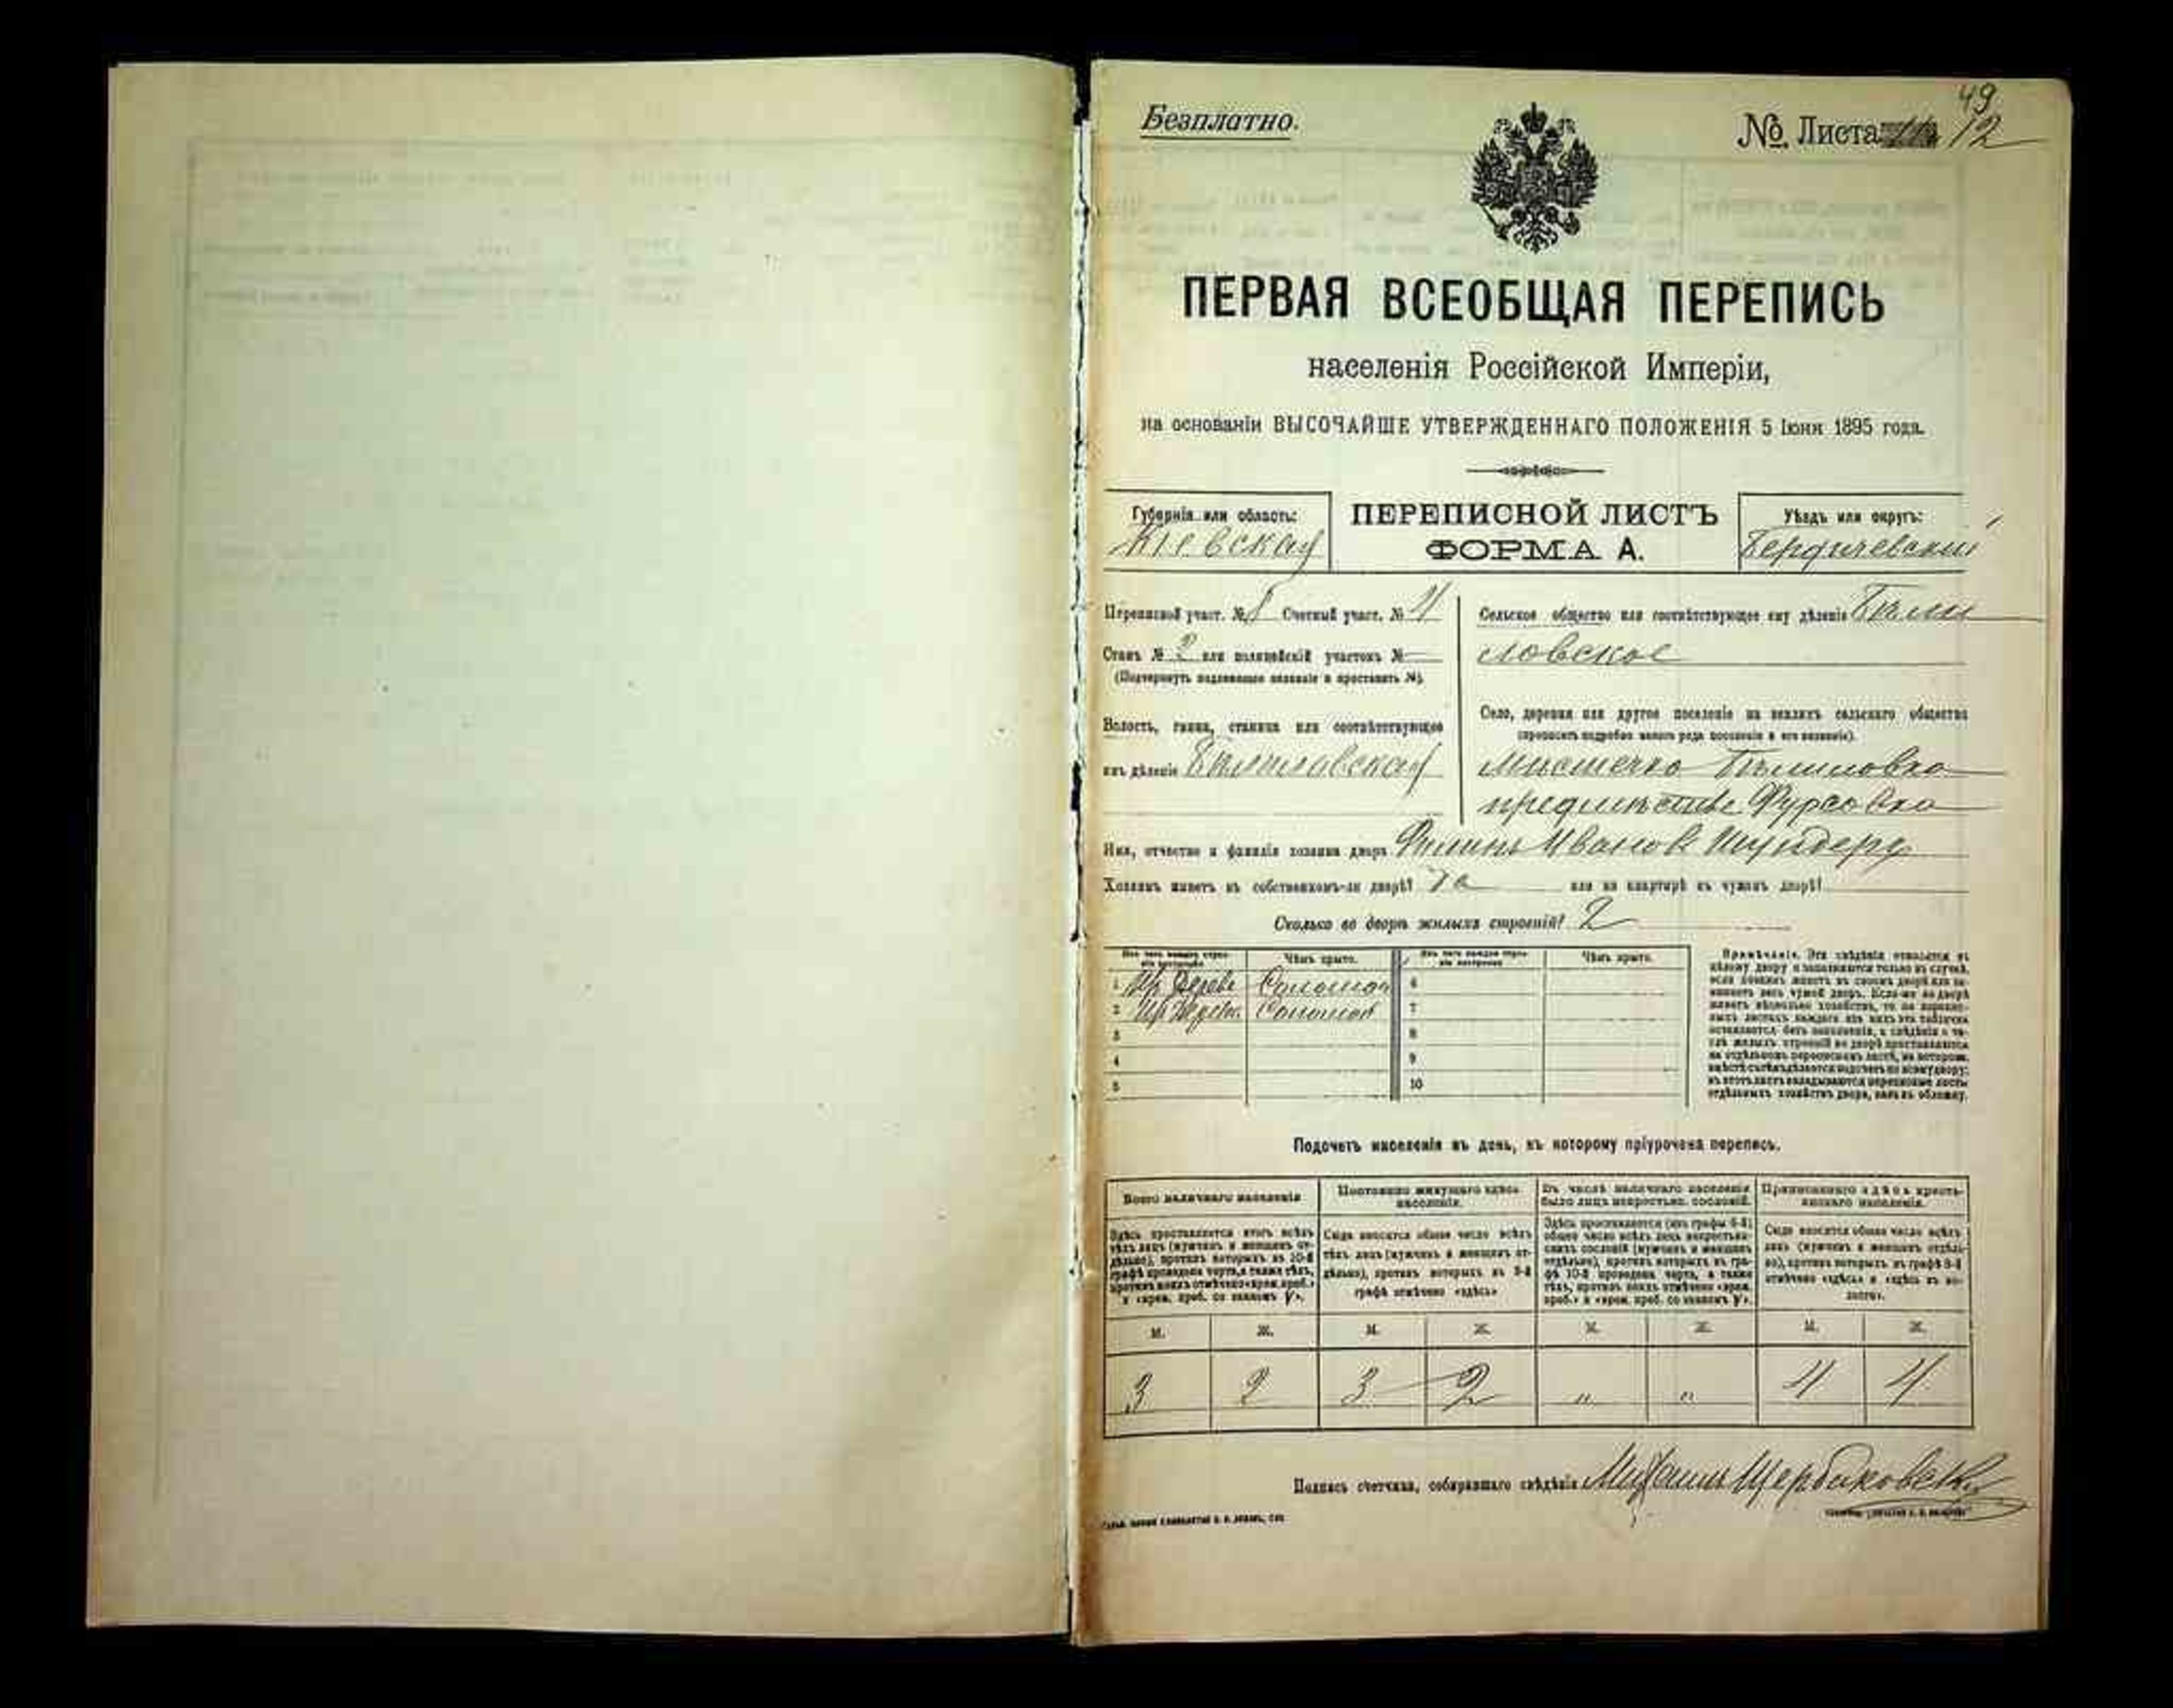 49
Безплатно.
№ Листа 12
ПЕРВАЯ ВСЕОБЩАЯ ПЕРЕПИСЬ
населенія Россійской Имперіи,
на основаніи ВЫСОЧАЙШЕ УТВЕРЖДЕННАГО ПОЛОЖЕНІЯ 5 Іюня 1895 года.
Губернія или область:
Кіевская
ПЕРЕПИСНОЙ ЛИСТЪ
ФОРМА А.
Уѣздъ или округъ:
Бердичевскій
Переписной участ. № Счетный участ. № 4
Станъ № 2 или полицейскій участокъ №
(Подчеркнуть надлежащее названіе и проставить №).
Волость, гмина, станица или соотвѣтствующее
имъ дѣленіе Бѣлиловская
Сельское общество или соотвѣтствующее ему дѣленіе Бѣли
ловское
Село, деревня или другое поселеніе на земляхъ сельскаго общества
(прописать подробно какого рода поселеніе и его названіе).
Мѣстечко Бѣлиловка
предмѣстье Фурсовка
Имя, отчество и фамилія хозяина двора Филипъ Иванов
Хозяинъ живетъ въ собственномъ-ли дворѣ? Да или на квартирѣ въ чужомъ дворѣ?
Сколько во дворѣ жилыхъ строеній? 2
Изъ чего каждое строеніе построено Чѣмъ крыто. Изъ чего каждое строеніе построено Чѣмъ крыто.
1 Из Дерева Соломой 6
2 Из Дерев. Соломой 7
3 8
4 9
5 10
Примѣчаніе. Эти свѣдѣнія относятся къ
цѣлому двору и заполняются только въ случаѣ,
если хозяинъ живетъ въ своемъ дворѣ или за-
нимаетъ весь чужой дворъ. Если-же во дворѣ
живетъ нѣсколько хозяйствъ, то на перепис-
ныхъ листахъ каждаго изъ нихъ эта табличка
оставляется безъ заполненія, а свѣдѣнія о чи-
слѣ жилыхъ строеній во дворѣ проставляются
на отдѣльномъ переписномъ листѣ, на которомъ
вмѣстѣ съ тѣмъ дѣлается подсчетъ по всему двору;
въ этотъ листъ вкладываются переписные листы
отдѣльныхъ хозяйствъ двора, какъ въ обложку.
Подсчетъ населенія въ день, къ которому пріурочена перепись.
Всего наличнаго населенія
Здѣсь проставляется итогъ всѣхъ
тѣхъ лицъ (мужчинъ и женщинъ от-
дѣльно), противъ которыхъ въ 10-й
графѣ проведена черта, а также тѣхъ,
противъ коихъ отмѣчено «врем. преб.»
и «врем. преб. со знакомъ V».
Постоянно живущаго здѣсь
населенія.
Сюда вносится общее число всѣхъ
тѣхъ лицъ (мужчинъ и женщинъ от-
дѣльно), противъ которыхъ въ 9-й
графѣ отмѣчено «здѣсь»
Въ числѣ наличнаго населенія
было лицъ некрестьянск. сословій.
Здѣсь проставляется (изъ графы 6-й)
общее число всѣхъ лицъ некрестьян-
скихъ сословій (мужчинъ и женщинъ
отдѣльно), противъ которыхъ въ гра-
фѣ 10-й проведена черта, а также
тѣхъ, противъ коихъ отмѣчено «врем.
преб.» и «врем. преб. со знакомъ V».
Приписаннаго здѣсь кресть-
янскаго населенія.
Сюда вносится общее число всѣхъ
лицъ (мужчинъ и женщинъ отдѣль-
но), противъ которыхъ въ графѣ 8-й
отмѣчено «здѣсь» и «здѣсь въ во-
лости».
М. Ж. М. Ж. М. Ж. М. Ж.
3 2 3 2 " " 4 4
Подпись счетчика, собиравшаго свѣдѣнія Михаилъ Щербаковскі